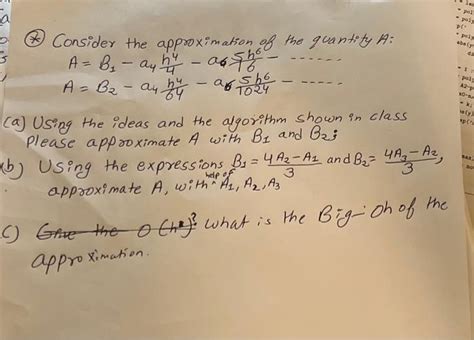 ⊛ Consider the approximation of the quantity A:
A = B₁ - a₄ h⁴/4 - a₆ 5h⁶/16 - ------
A = B₂ - a₄ h⁴/64 - a₆ 5h⁶/1024 - -----
(a) Using the ideas and the algorithm shown in class
please approximate A with B₁ and B₂;
(b) Using the expressions B₁ = (4A₂-A₁)/3 and B₂ = (4A₃-A₂)/3,
approximate A, with help of A₁, A₂, A₃
c) Give the O(h²)? What is the Big-Oh of the
approximation.